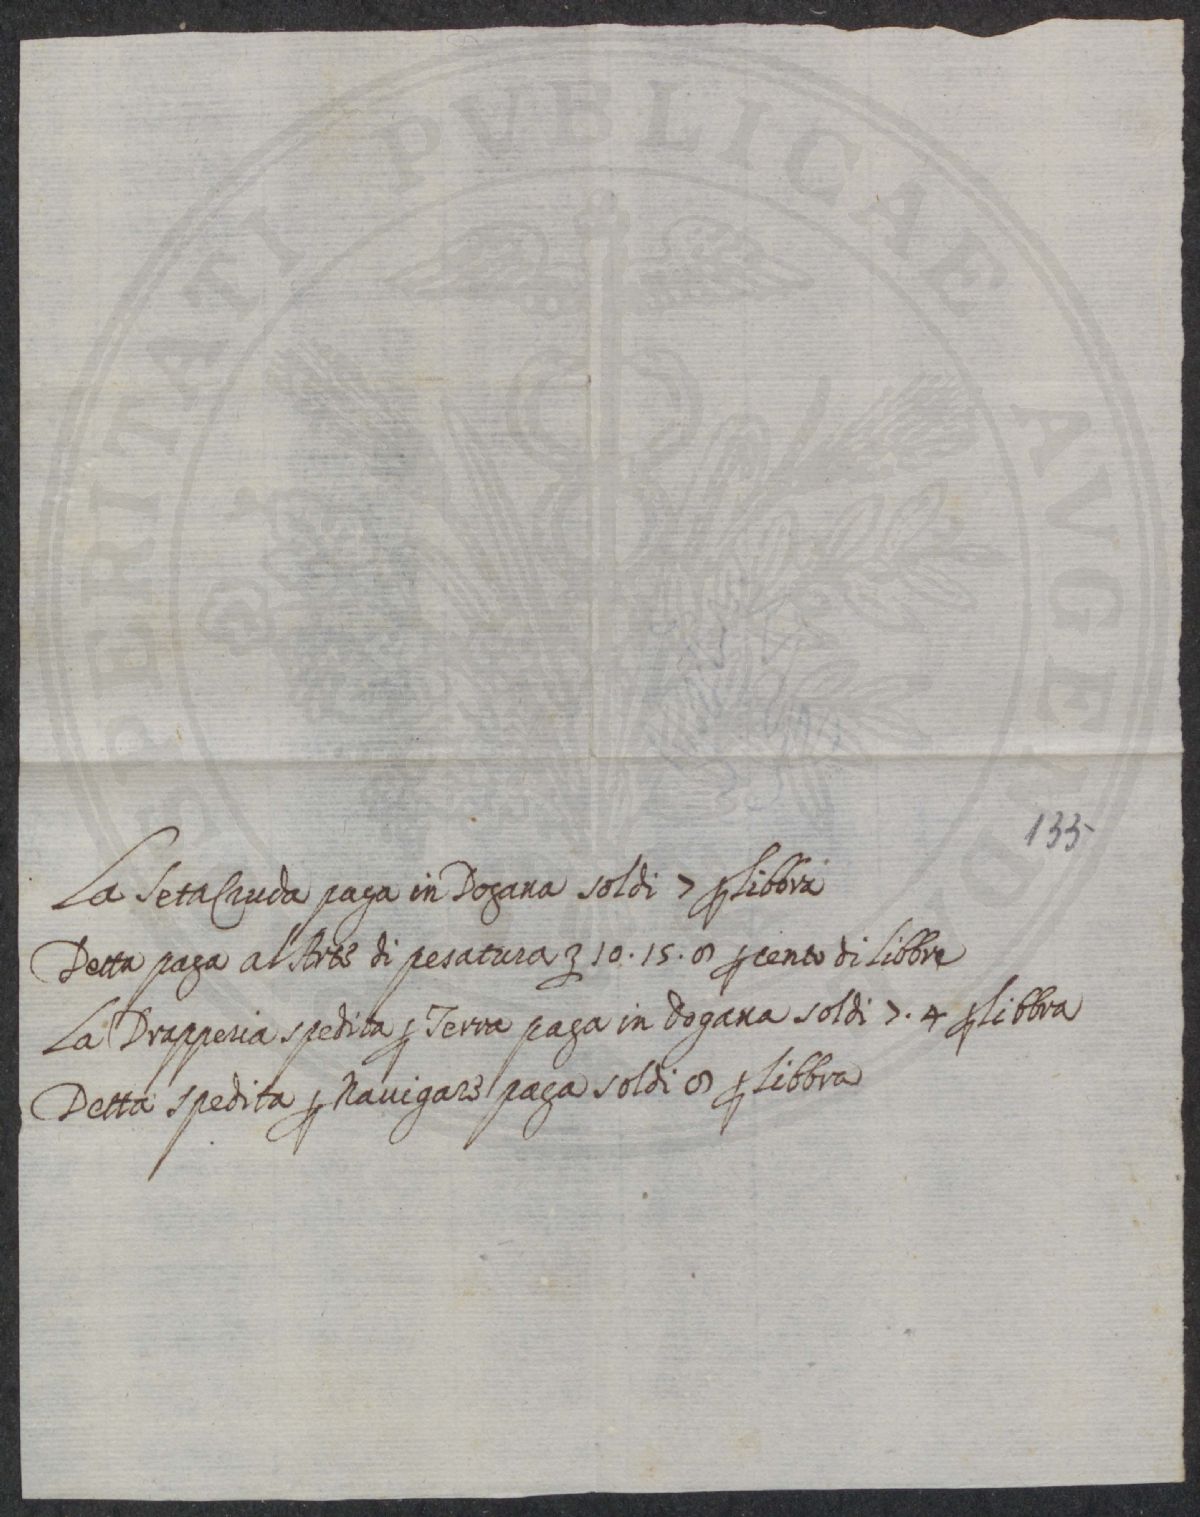 PROSPERITATI PVBLICAE AVGENDAE
133
La Seta Cruda paga in Dogana soldi 7 ꝑ libbra
Detta paga al'Arte di pesatura ʒ 10.15.8 ꝑ cento di Libbre
La Drapperia spedita ꝑ Terra paga in Dogana soldi 7.4 ꝑ libbra
Detta spedita ꝑ Nauigare paga soldi 8 ꝑ Libbra